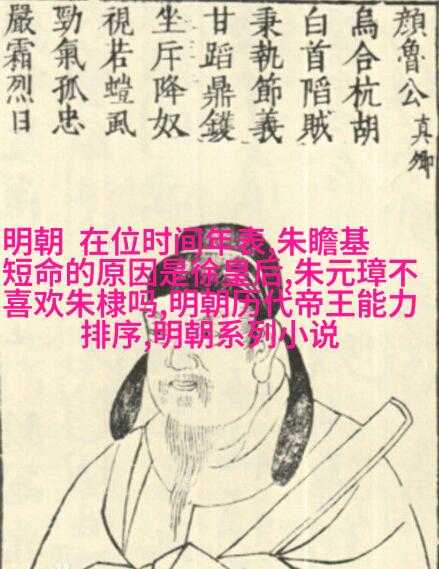 顏魯公真卿
烏合杭胡
白首陷賊
秉執節義
甘蹈鼎鑊
坐斥降奴
視若螘虱
勁氣孤忠
嚴霜烈日
明朝 在位时间年表,朱瞻基
短命的原因是徐皇后,朱元璋不
喜欢朱棣吗,明朝历代帝王能力
排序,明朝系列小说